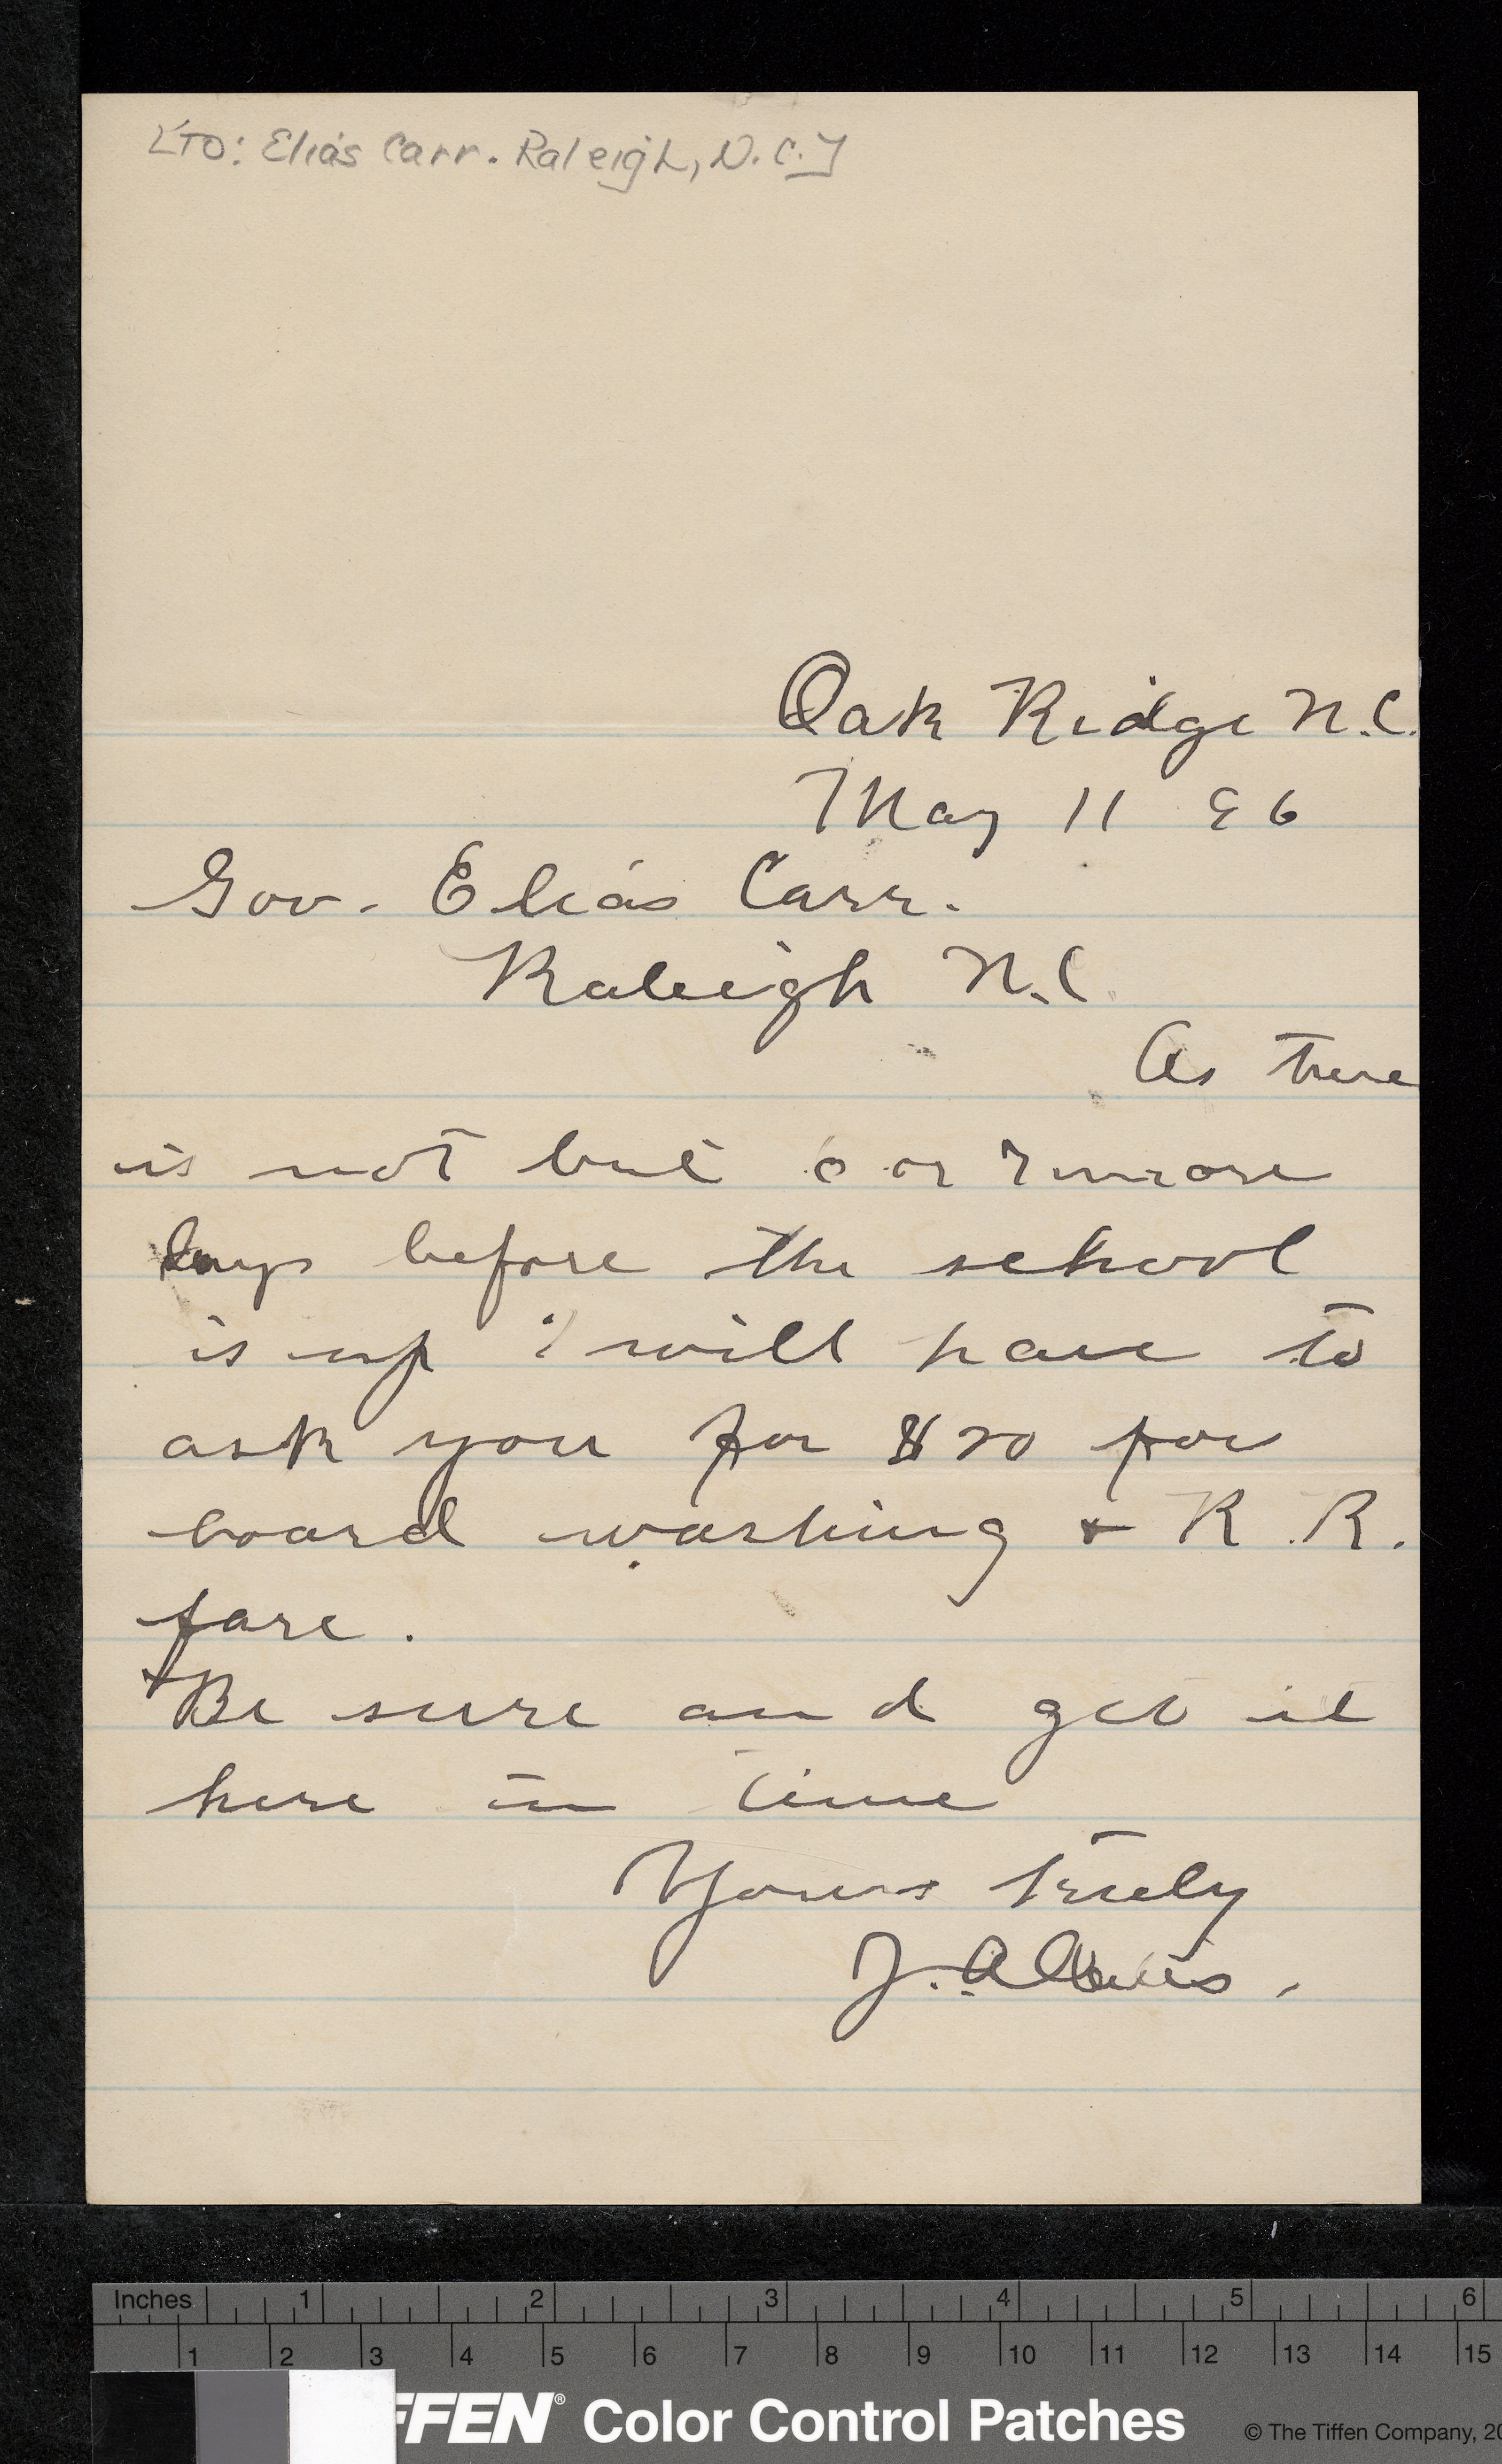 [TO: Elias Carr. Raleigh, N.C.]
Oak Ridge N.C.
May 11 96
Gov. Elias Carr.
Raleigh N.C.
As there
is not but 6 or 7 more
days before the school
is up I will have to
ask you for $20 for
board washing & R R.
fare.
Be sure and get it
here in time
Yours truly
J. A.
Inches 1 2 3 4 5 6
1 2 3 4 5 6 7 8 9 10 11 12 13 14 15
FFEN® Color Control Patches © The Tiffen Company, 20